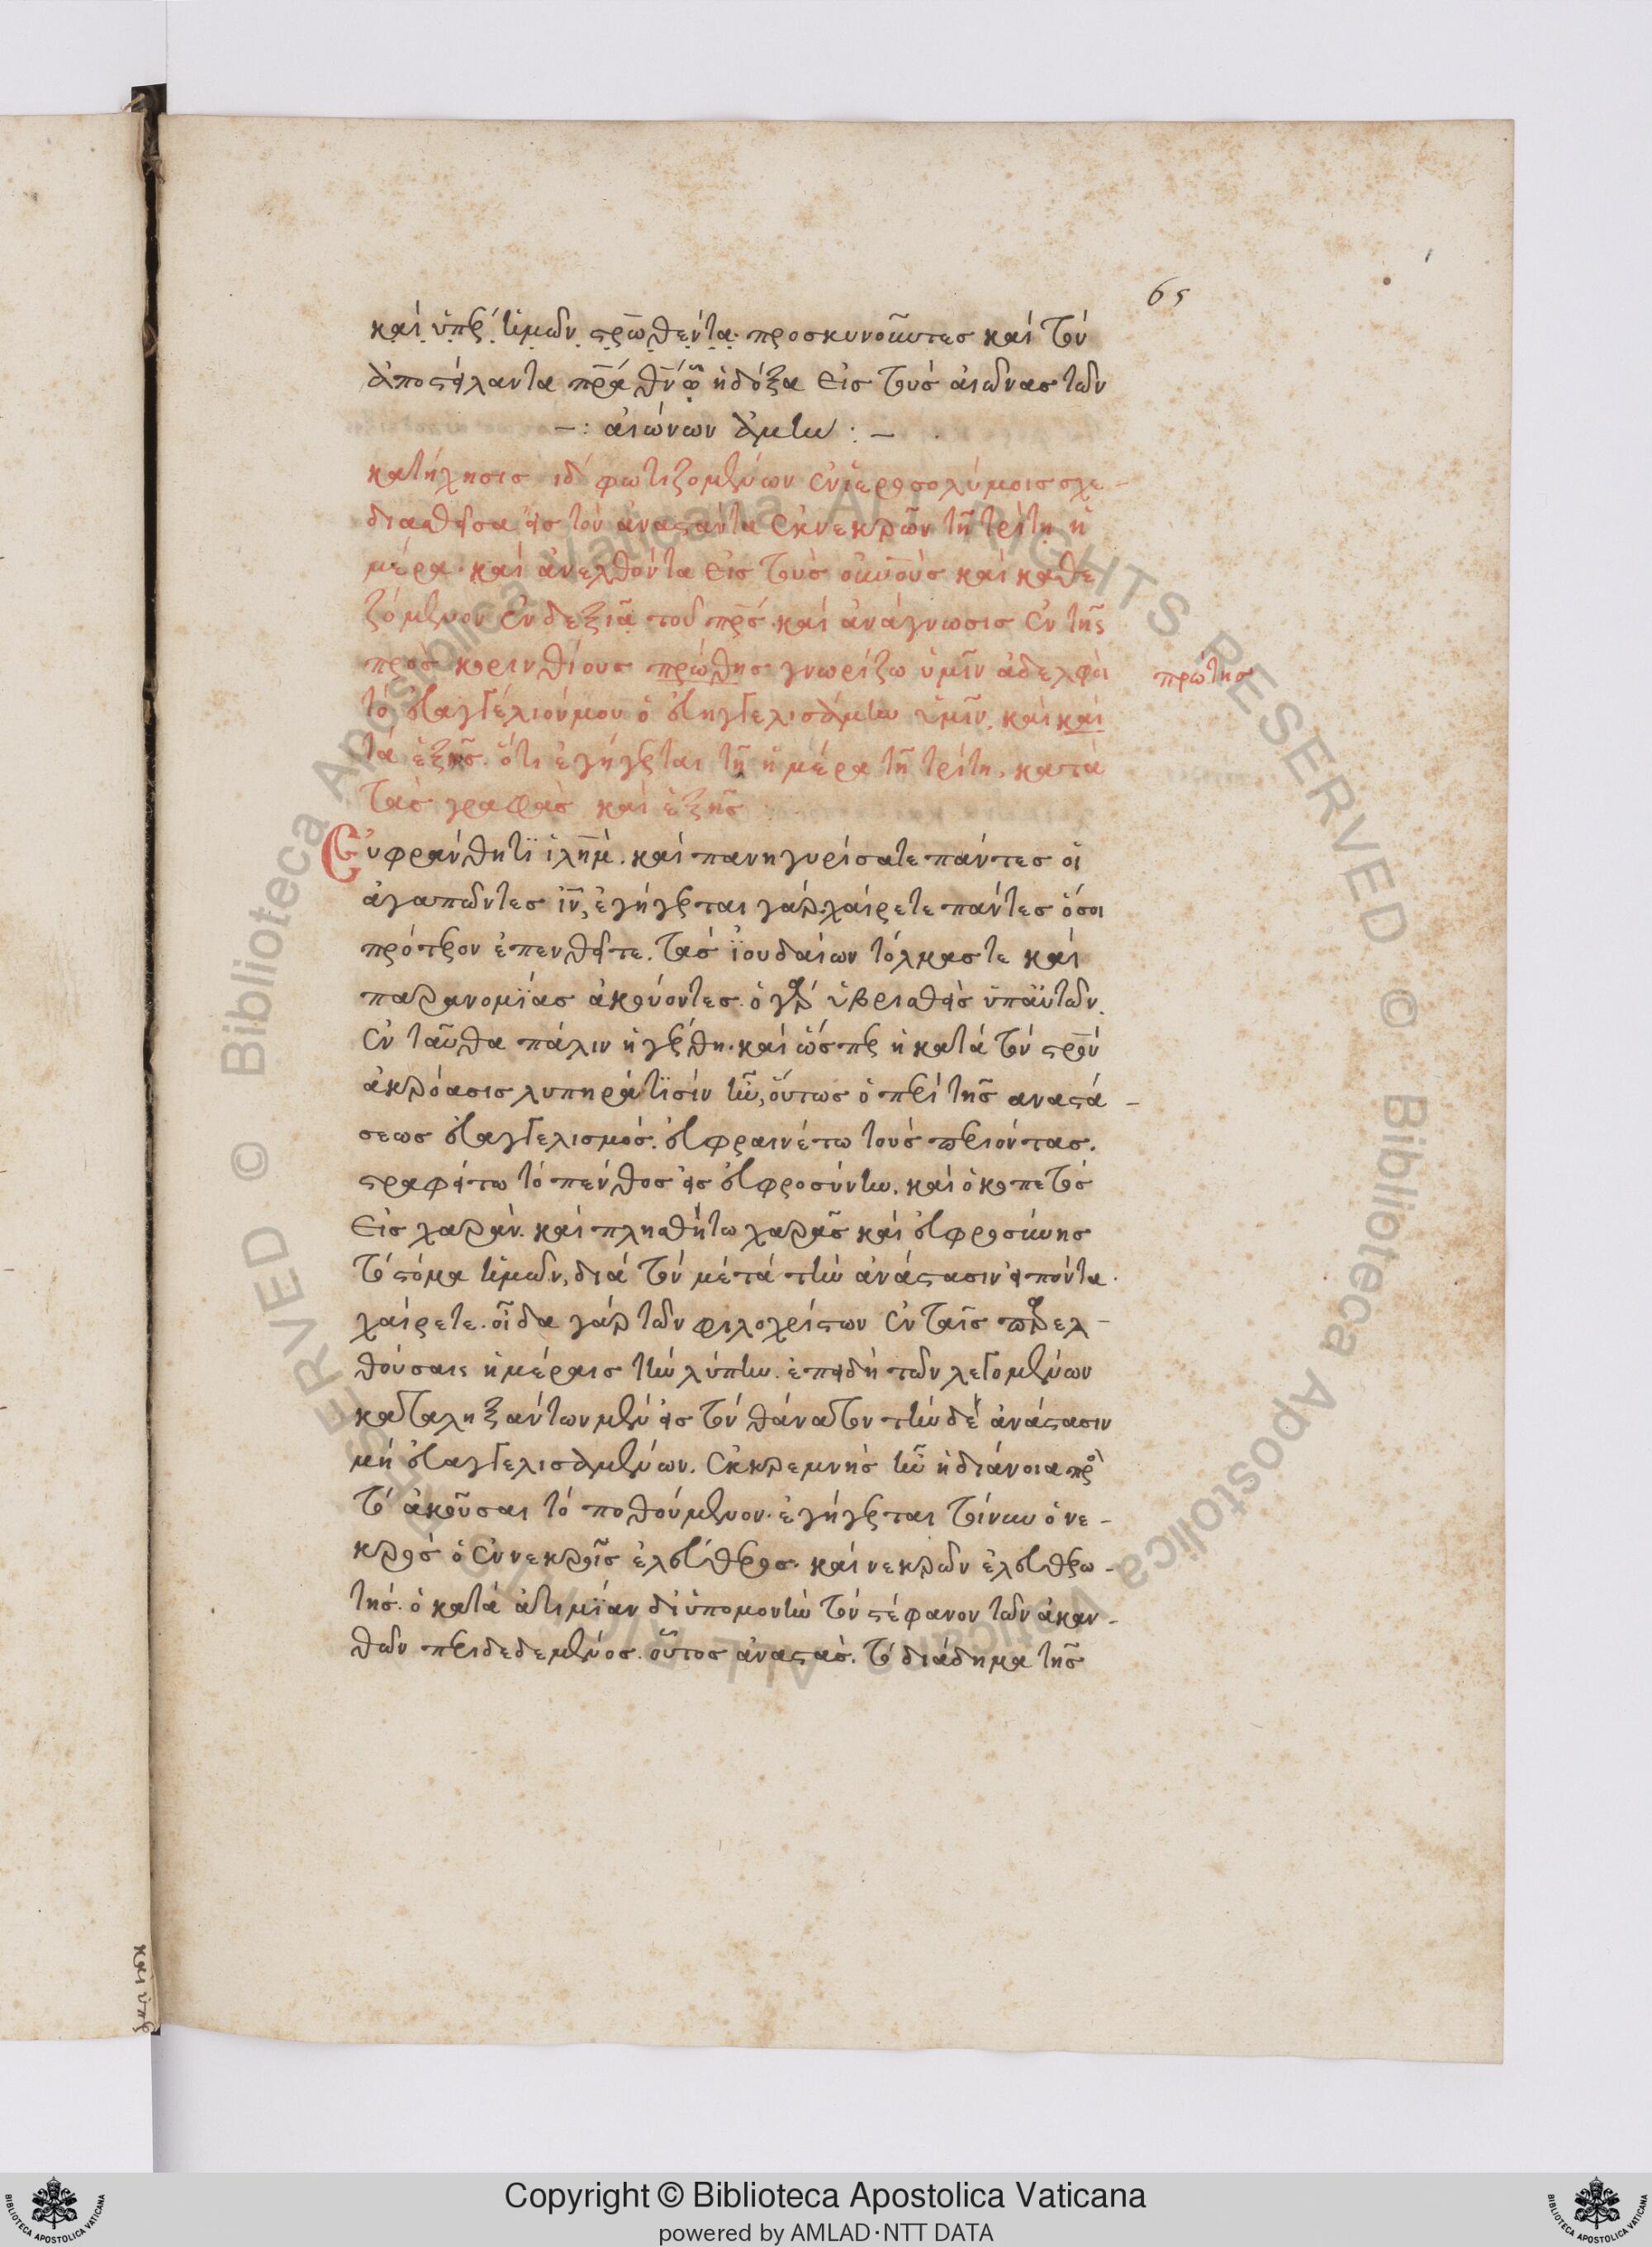 65
καὶ ὑπὲρ ἡμῶν στρ̅ωθέντα· προσκυνοῦντες καὶ τὸν
ἀποστείλαντα πρ̅ά θν́ ᾧ ἡ δόξα εἰς τοὺς αἰῶνας τῶν
–: αἰώνων ἀμὴν : –
κατήχησις ιδ φωτιζομένων ἐν ἱεροσολύμοις σχε-
διασθεῖσα εἰς τὸν ἀναστάντα ἐκ νεκρῶν τῇ τρίτῃ ἡ
μέρα· καὶ ἀνελθόντα εἰς τοὺς οὐν̅οὺς καὶ καθε
ζόμενον ἐν δεξιᾷ τοῦ πρ̅ς· καὶ ἀνάγνωσις ἐν τῆς
πρὸς κορινθίους πρώθης γνωρίζω ὑμῖν ἀδελφοὶ
πρώτης
τὸ εὐαγγέλιόν μου ὁ εὐηγγελισάμην ὑμῖν. καὶ καὶ
τὰ ἑξῆς. ὅτι ἐγήγερται τῇ ἡμέρα τῇ τρίτη, κατὰ
τὰς γραφὰς καὶ ἑξῆς :
Εὐφράνθητϊ ἱλ̅ημ. καὶ πανηγυρίσατε πάντες οἱ
ἀγαπῶντες ἰν̅, ἐγήγερται γάρ· χαίρετε πάντες ὅσοι
πρότερον ἐπενθεῖτε. τὰς ἰουδαίων τόλμας τε καὶ
παρανομΐας ἀκούοντες. ὁ γὰρ ὑβρισθεὶς ὑπ' αὐτῶν.
ἐνταῦθα πάλιν ἠγέρθη· καὶ ὥσπερ ἡ κατὰ τὸν στρ̅ὸν
ἀκρόασις λυπηρά τϊσὶν ἦν, οὕτως ὁ περὶ τῆς αναστά-
σεως εὐαγγελισμός. εὐφραινέτω τοὺς περιόντας.
στραφείτω τὸ πένθος εἰς εὐφροσύνην. καὶ ὁ κοπετὸς
εἰς χαράν. καὶ πλησθήτω χαρᾶς καὶ εὐφροσύνης
τὸ στόμα ἡμῶν, διὰ τὸν μετὰ τὴν ἀνάστασιν εἰπόντα·
χαίρετε. οἶδα γὰρ τῶν φιλοχρίστων ἐν ταῖς παρελ-
θούσαις ἡμέραις τὴν λύπην. ἐπειδὴ τῶν λεγομένων
καταληξάντων μὲν εἰς τὸν θάνατον τὴν δὲ ἀνάστασιν
μὴ εὐαγγελισαμένων. ἐκκρεμνὴς ἦν ἡ διάνοια πρὸς
τὸ ἀκοῦσαι τὸ ποθούμενον. ἐγήγερται τοίνυν ὁ νε-
κρὸς ὁ ἐν νεκροῖς ἐλεύθερος. καὶ νεκρῶν ἐλευθερω-
τής. ὁ κατὰ ἀτιμΐαν δι' ὑπομονὴν τὸν στέφανον τῶν ἀκαν-
θῶν περιδεδεμένος. οὗτος ἀναστὰς. τὸ διάδημα τῆς
καὶ ὑπὲρ
Copyright © Biblioteca Apostolica Vaticana
powered by AMLAD·NTT DATA